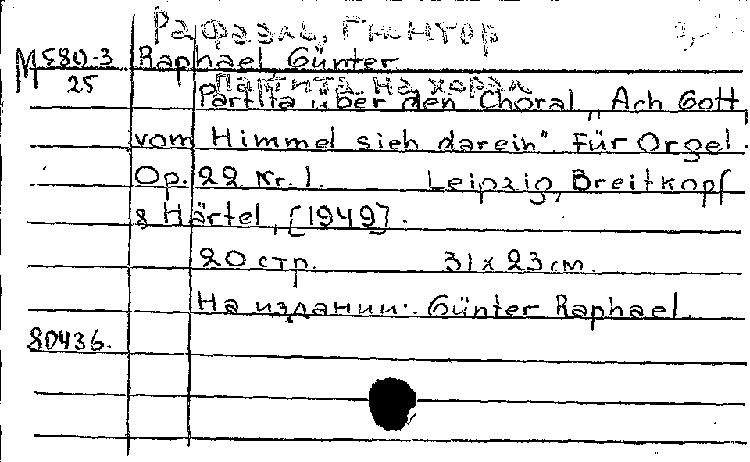 Рафаэль, Гюнтер
М 580-3 Raphael, Günter
25 Партита на хорал
Partita über den Choral „Ach Gott,
vom Himmel sieh darein". Für Orgel.
Op. 22 Nr. 1. Leipzig, Breitkopf
& Härtel, [1949].
20 стр. 31 x 23 cm.
На издании: Günter Raphael.
80436.